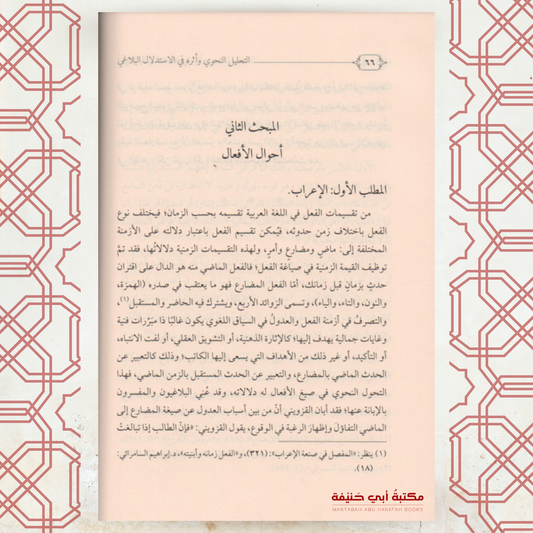 ٦٦
التحليل النحوي وأثره في الاستدلال البلاغي
المبحث الثاني
أحوال الأفعال
المطلب الأول: الإعراب.
من تقسيمات الفعل في اللغة العربية تقسيمه بحسب الزمان؛ فيختلف نوع
الفعل باختلاف زمن حدوثه، فيُمكن تقسيم الفعل باعتبار دلالته على الأزمنة
المختلفة إلى: ماضٍ ومضارعٍ وأمرٍ، ولهذه التقسيمات الزمنية دلالاتُها، فقد تمَّ
توظيف القيمة الزمنية في صياغة الفعل؛ فالفعل الماضي منه هو الدال على اقتران
حدثٍ بزمانٍ قبل زمانك، أمّا الفعل المضارع فهو ما يعتقب في صدره (الهمزة،
والنون، والتاء، والياء)، وتسمى الزوائد الأربع، ويشترك فيه الحاضر والمستقبل(١)
والتصرفُ في أزمنة الفعل والعدولُ في السياق اللغوي يكون غالبًا ذا مبرّرات فنية
وغايات جمالية يهدف إليها؛ كالإثارة الذهنية، أو التشويق العقلي، أو لفت الانتباه،
أو التأكيد، أو غير ذلك من الأهداف التي يسعى إليها الكاتب؛ وذلك كالتعبير عن
الحدث الماضي بالمضارع، والتعبير عن الحدث المستقبل بالزمن الماضي، فهذا
التحول النحوي في صيغ الأفعال له دلالاته، وقد عُني البلاغيون والمفسرون
بالإبانة عنها؛ فقد أبان القزويني أنَّ من بين أسباب العدول عن صيغة المضارع إلى
الماضي التفاؤلَ وإظهارَ الرغبة في الوقوع، يقول القزويني: «فإنَّ الطالب إذا تبالغتْ
(١) ينظر: «المفصل في صنعة الإعراب»: (٣٢١)، و«الفعل زمانه وأبنيته»، د.إبراهيم السامرائي:
(١٨).
مكتبة أبي حنيفة
MAKTABAH ABU HANIFAH BOOKS